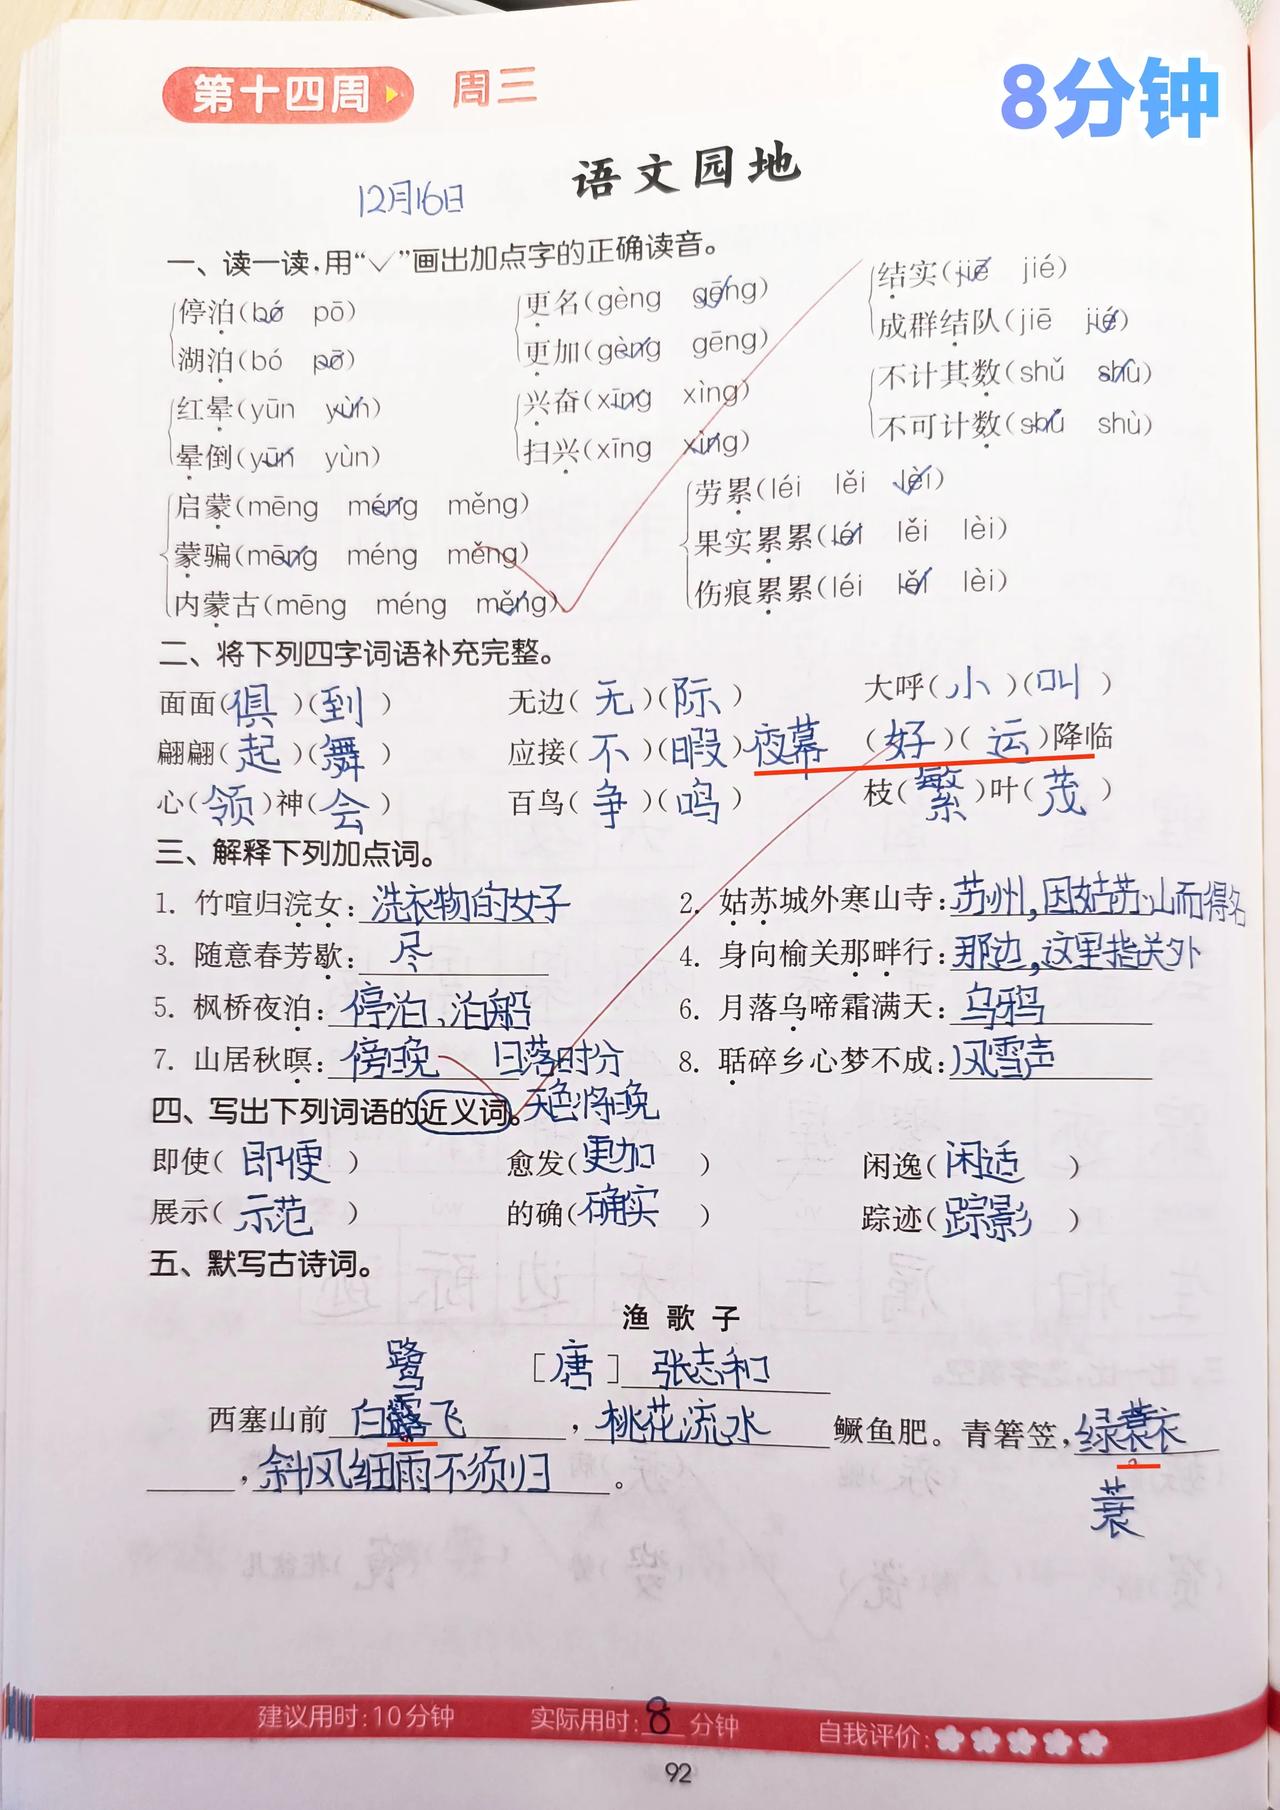 第十四周 周三
8分钟
语文园地
12月16日
一、读一读,用“✓”画出加点字的正确读音。
停泊(bó pō) 更名(gèng gēng) 结实(jiē jié)
湖泊(bó pō) 更加(gèng gēng) 成群结队(jiē jié)
红晕(yūn yùn) 兴奋(xīng xìng) 不计其数(shǔ shù)
晕倒(yūn yùn) 扫兴(xīng xìng) 不可计数(shǔ shù)
启蒙(mēng méng měng) 劳累(léi lěi lèi)
蒙骗(mēng méng měng) 果实累累(léi lěi lèi)
内蒙古(mēng méng měng) 伤痕累累(léi lěi lèi)
二、将下列四字词语补充完整。
面面(俱)(到) 无边(无)(际) 大呼(小)(叫)
翩翩(起)(舞) 应接(不)(暇) 夜幕 (好)(运)降临
心(领)神(会) 百鸟(争)(鸣) 枝(繁)叶(茂)
三、解释下列加点词。
1. 竹喧归浣女:洗衣物的女子 2. 姑苏城外寒山寺:苏州,因姑苏山而得名
3. 随意春芳歇:尽 4. 身向榆关那畔行:那边,这里指关外
5. 枫桥夜泊:停泊,泊船 6. 月落乌啼霜满天:乌鸦
7. 山居秋暝:傍晚 日落时分 8. 聒碎乡心梦不成:风雪声
四、写出下列词语的近义词。 天色将晚
即使(即便) 愈发(更加) 闲逸(闲适)
展示(示范) 的确(确实) 踪迹(踪影)
五、默写古诗词。
渔歌子
鹭 [唐] 张志和
西塞山前白露飞,桃花流水鳜鱼肥。青箬笠,绿蓑衣
,斜风细雨不须归。
蓑
建议用时:10分钟 实际用时:8分钟 自我评价:
92